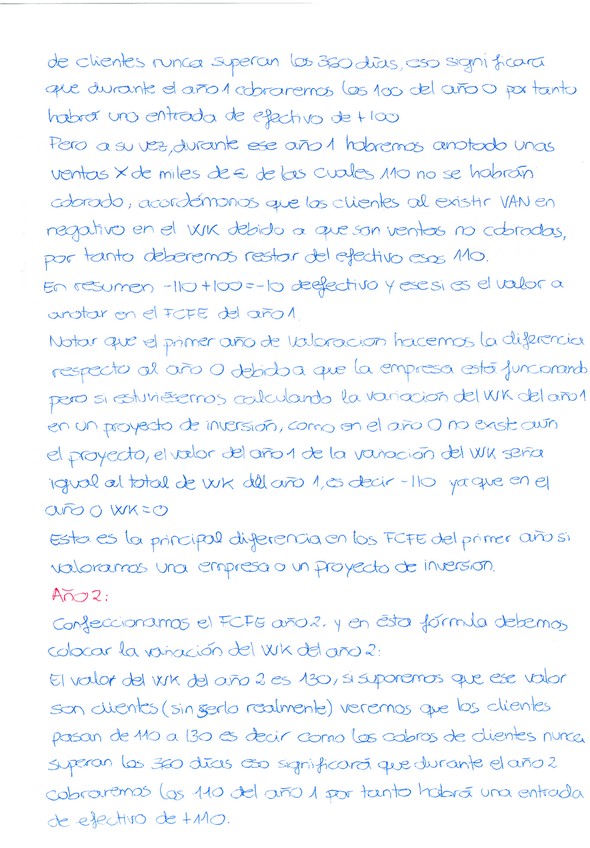 de clientes nunca superan los 360 días, eso significará
que durante el año 1 cobraremos los 100 del año 0 por tanto
habrá una entrada de efectivo de +100
Pero a su vez, durante ese año 1 habremos anotado unas
ventas X de miles de € de las cuales 110 no se habrán
cobrado, acordémonos que los clientes al existir VAN en
negativo en el WK debido a que son ventas no cobradas,
por tanto deberemos restar del efectivo esos 110.
En resumen -110 +100 = -10 de efectivo y ese si es el valor a
anotar en el FCFE del año 1.
Notar que el primer año de valoración hacemos la diferencia
respecto al año 0 debido a que la empresa está funcionando
pero si estuviésemos calculando la variación del WK del año 1
en un proyecto de inversión, como en el año 0 no existe aún
el proyecto, el valor del año 1 de la variación del WK sería
igual al total de WK del año 1, es decir -110 ya que en el
año 0 WK=0
Esta es la principal diferencia en los FCFE del primer año si
valoramos una empresa o un proyecto de inversión.
Año 2:
Confeccionamos el FCFE año 2. y en ésta fórmula debemos
colocar la variación del WK del año 2:
El valor del WK del año 2 es 130, si suponemos que ese valor
son clientes (sin serlo realmente) veremos que los clientes
pasan de 110 a 130 es decir como los cobros de clientes nunca
superan los 360 días eso significará que durante el año 2
cobraremos los 110 del año 1 por tanto habrá una entrada
de efectivo de +110.